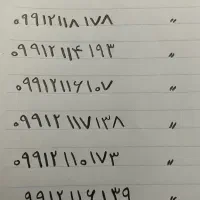 ۰۹۹۱۲۱۱۸۱۷۸ "
۰۹۹۱۲۱۱۴۱۹۳ "
۰۹۹۱۲۱۱۶۱۰۷ "
۰۹۹۱۲۱۱۷۱۳۸ "
۰۹۹۱۲۱۱۰۱۷۳ "
۰۹۹۱۲۱۱۶۱۳۹ "